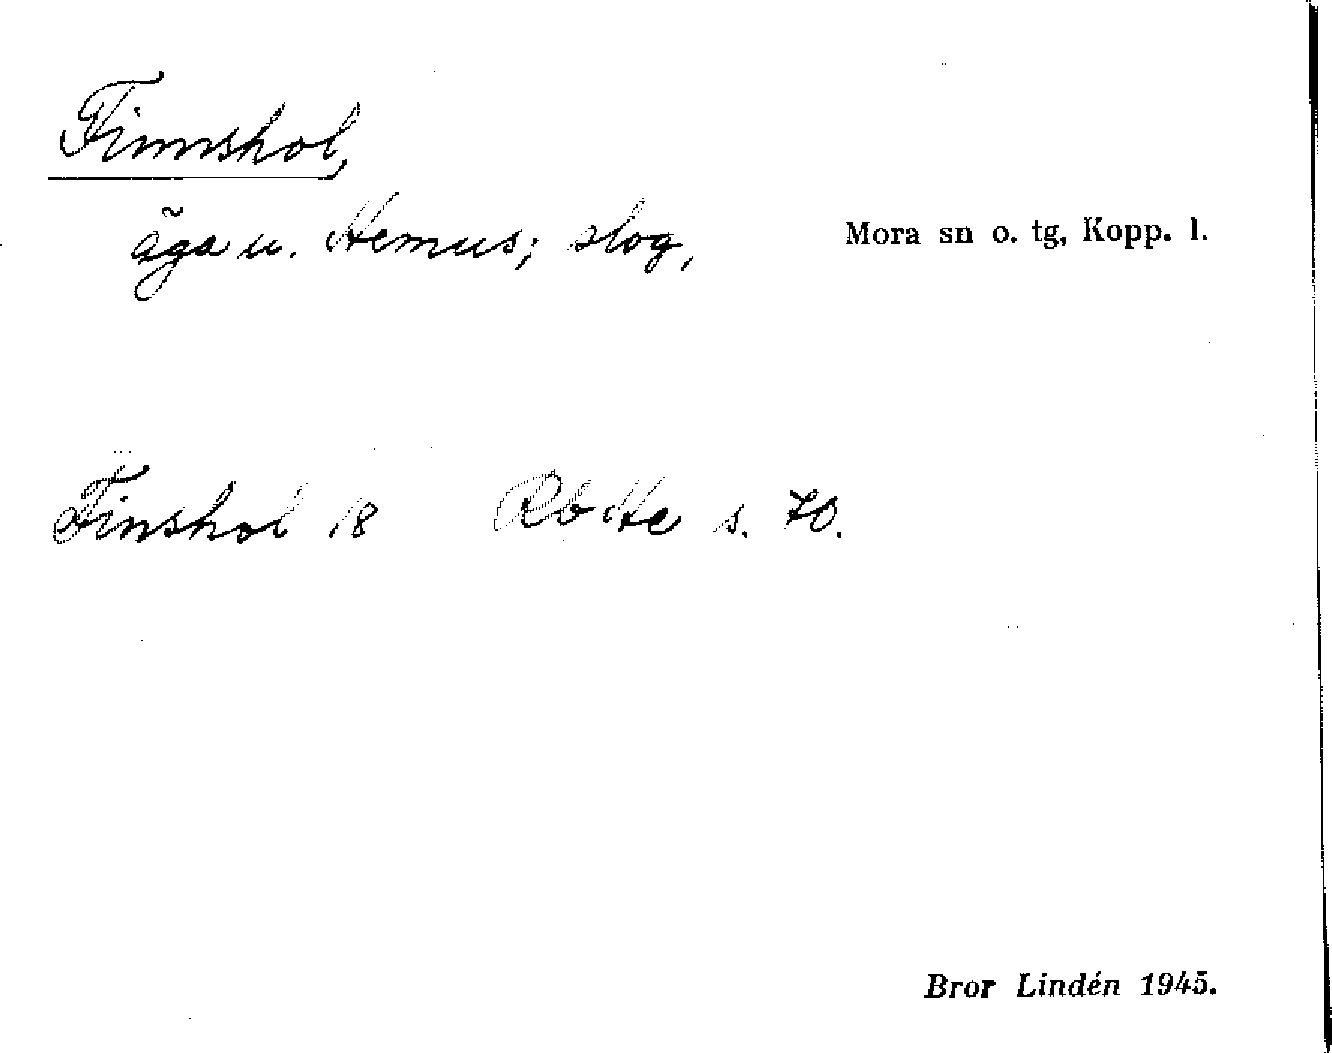 Finnshol,
äga u. Hemus; slog,
Mora sn o. tg, Kopp. l.
Finshol 18 Rötte s. 70.
Bror Lindén 1945.